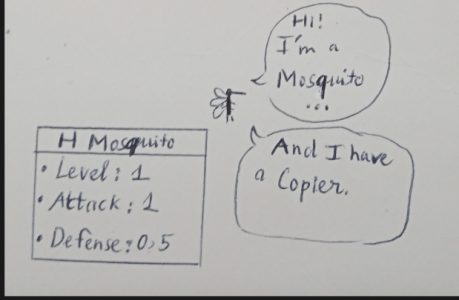 Hi!
I'm a
Mosquito
...
And I have
a Copier.
H Mosquito
• Level: 1
• Attack: 1
• Defense: 0,5